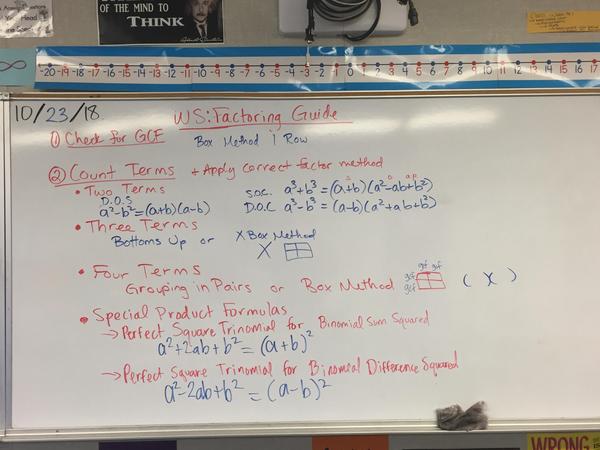 OF THE MIND TO
THINK
∞
-20 -19 -18 -17 -16 -15 -14 -13 -12 -11 -10 -9 -8 -7 -6 -5 -4 -3 -2 -1 0 1 2 3 4 5 6 7 8 9 10 11 12 13 14 15 16 17
10/23/18
WS: Factoring Guide
① Check for GCF Box Method 1 Row
② Count Terms + Apply correct factor method
• Two Terms
D.O.S
a²-b²=(a+b)(a-b)
S.O.C. a³+b³=(a+b)(a²-ab+b²)
S O AP
D.O.C a³-b³=(a-b)(a²+ab+b²)
• Three Terms
Bottoms Up or X Box Method
X
• Four Terms
Grouping in Pairs or Box Method
gcf gcf
gcf
gcf
( X )
• Special Product Formulas
→ Perfect Square Trinomial for Binomial Sum Squared
a²+2ab+b²=(a+b)²
→ Perfect Square Trinomial for Binomial Difference Squared
a²-2ab+b²=(a-b)²
WRONG